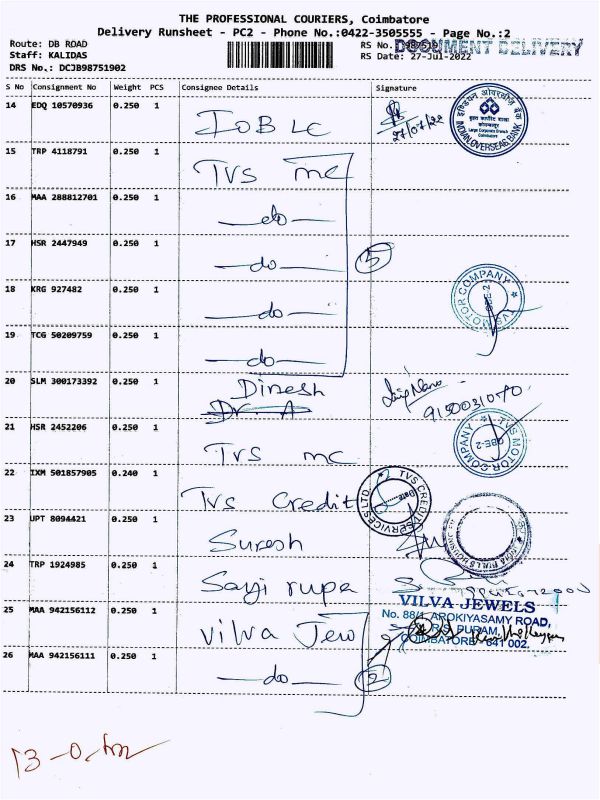 THE PROFESSIONAL COURIERS, Coimbatore
Delivery Runsheet - PC2 - Phone No.:0422-3505555 - Page No.:2
Route: DB ROAD
Staff: KALIDAS
DRS No.: DCJB98751902
RS No.
DOCUMENT DELIVERY
RS Date: 27-Jul-2022
S No Consignment No Weight PCS Consignee Details Signature
14 EDQ 10570936 0.250 1 IOB LC 27/07/22
इण्डियन ओवरसीज़ बैंक
Large Corporate Branch
Coimbatore
INDIAN OVERSEAS BANK
15 TRP 4118791 0.250 1 TVS mc
16 MAA 288812701 0.250 1 —do—
17 HSR 2447949 0.250 1 —do— 5
18 KRG 927482 0.250 1 —do—
TVS MOTOR COMPANY
19 TCG 50209759 0.250 1 —do—
20 SLM 300173392 0.250 1 Dinesh
9150031070
21 HSR 2452206 0.250 1 TVS mc
TVS MOTOR COMPANY
22 IXM 501857905 0.240 1 TVS Credit
TVS CREDIT SERVICES LTD.
Date
23 UPT 8094421 0.250 1 Suresh
24 TRP 1924985 0.250 1 Sayi rupa
25 MAA 942156112 0.250 1 Vilva Jew
VILVA JEWELS
No. 88/1, AROKIYASAMY ROAD,
R.S. PURAM,
COIMBATORE - 641 002.
26 MAA 942156111 0.250 1 —do— 2